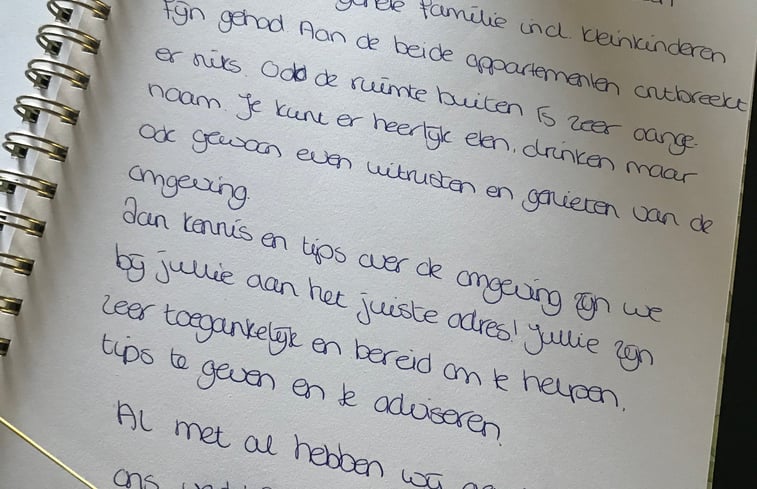 familie incl. kleinkinderen
fijn gehad Aan de beide appartementen ontbreekt
er niks. Ook de ruimte buiten is zeer aange-
naam. Je kunt er heerlijk eten, drinken maar
ook gewoon even uitrusten en genieten van de
omgeving.
Aan kennis en tips over de omgeving zijn we
bij jullie aan het juiste adres! Jullie zijn
zeer toegankelijk en bereid om te helpen,
tips te geven en te adviseren.
Al met al hebben wij
ons